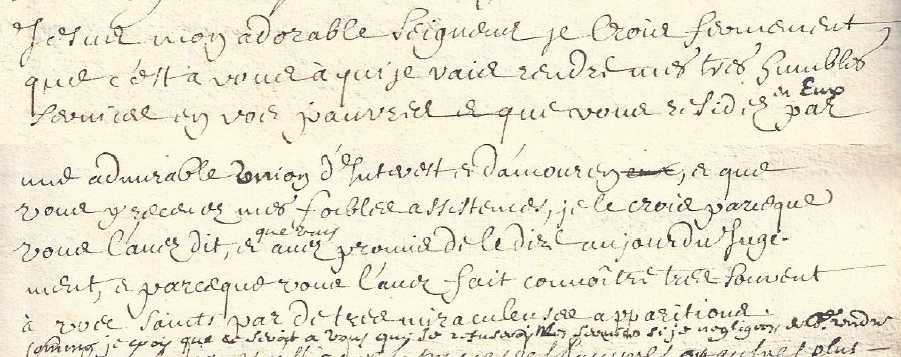 Jesus mon adorable Seigneur je Crois fermement
que c'est a vous à qui je vais rendre mes tres humbles
services en vos pauvres e que vous residez en Eux par
une admirable Union d'Interest et d'amour en eux, e que
vous y recevez mes foibles assistences, je le crois parceque
vous l'avez dit, et que vous avez promis de le dire au jour du Juge-
ment, e parceque vous l'avez fait connoître tres souvent
à vos saints par de tres miraculeuses apparitions.
comme je crois que ce seroit a vous que je refuserois mes services si je negligeois de les rendre